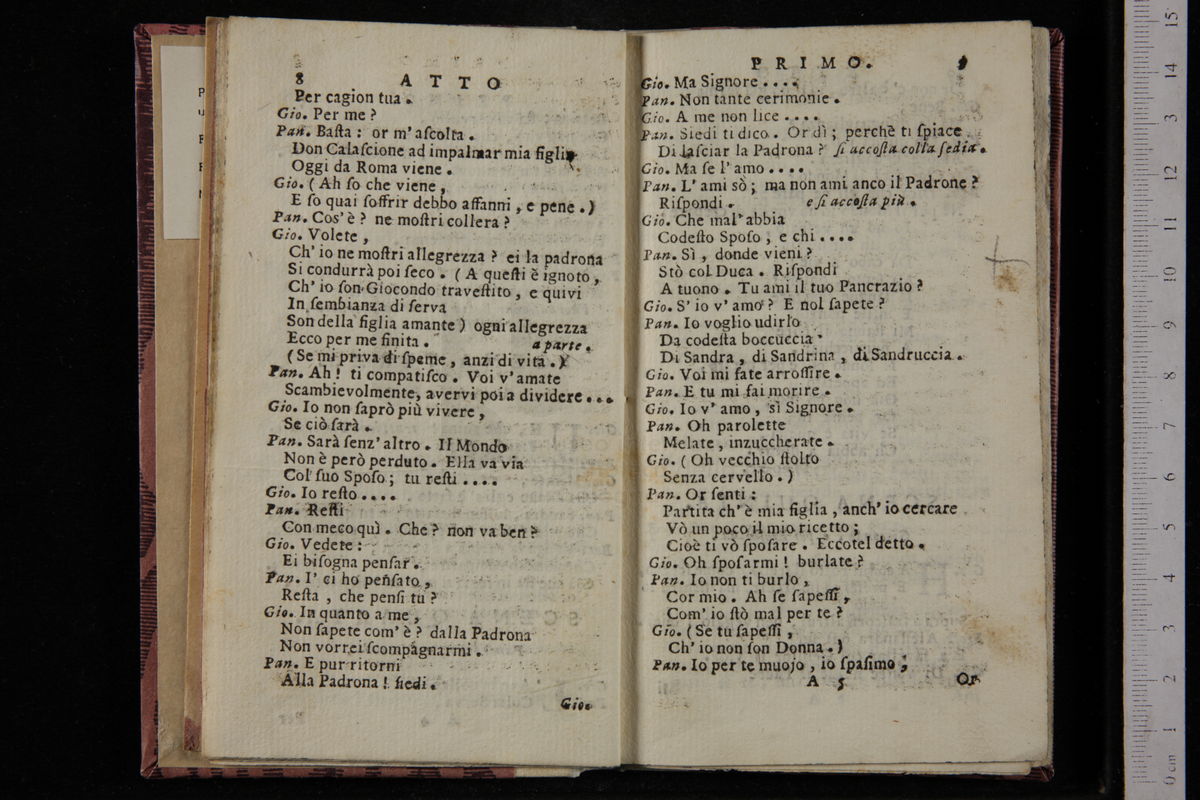 8 ATTO
Per cagion tua.
Gio. Per me?
Pan. Baſta: or m'aſcolta.
Don Calaſcione ad impalmar mia figlia
Oggi da Roma viene.
Gio. (Ah ſo che viene,
E ſo quai ſoffrir debbo affanni, e pene.)
Pan. Cos'è? ne moſtri collera?
Gio. Volete,
Ch' io ne moſtri allegrezza? ei la padrona
Si condurrà poi ſeco. (A queſti è ignoto,
Ch' io ſon Giocondo traveſtito, e quivi
In ſembianza di ſerva
Son della figlia amante) ogni allegrezza
Ecco per me finita. a parte.
(Se mi priva di ſpeme, anzi di vita.)
Pan. Ah! ti compatiſco. Voi v'amate
Scambievolmente, avervi poi a dividere...
Gio. Io non ſaprò più vivere,
Se ciò ſarà.
Pan. Sarà ſenz'altro. Il Mondo
Non è però perduto. Ella va via
Col ſuo Spoſo; tu reſti....
Gio. Io reſto....
Pan. Reſti
Con meco quì. Che? non va ben?
Gio. Vedete:
Ei biſogna penſar.
Pan. I' ci ho penſato,
Reſta, che penſi tu?
Gio. In quanto a me,
Non ſapete com'è? dalla Padrona
Non vorrei ſcompagnarmi.
Pan. E pur ritorni
Alla Padrona! ſiedi.
Gio.
PRIMO. 9
Gio. Ma Signore....
Pan. Non tante cerimonie.
Gio. A me non lice....
Pan. Siedi ti dico. Or dì; perchè ti ſpiace
Di laſciar la Padrona? ſi accoſta colla ſedia.
Gio. Ma ſe l'amo....
Pan. L'ami sò; ma non ami anco il Padrone?
Riſpondi. e ſi accoſta più.
Gio. Che mal'abbia
Codeſto Spoſo, e chi....
Pan. Sì, donde vieni?
Stò col Duca. Riſpondi
A tuono. Tu ami il tuo Pancrazio?
Gio. S'io v'amo? E nol ſapete?
Pan. Io voglio udirlo
Da codeſta boccuccia
Di Sandra, di Sandrina, di Sandruccia.
Gio. Voi mi fate arroſſire.
Pan. E tu mi fai morire.
Gio. Io v'amo, sì Signore.
Pan. Oh parolette
Melate, inzuccherate.
Gio. (Oh vecchio ſtolto
Senza cervello.)
Pan. Or ſenti:
Partita ch'è mia figlia, anch'io cercare
Vò un poco il mio ricetto;
Cioè ti vò ſpoſare. Eccotel detto.
Gio. Oh ſpoſarmi! burlate?
Pan. Io non ti burlo,
Cor mio. Ah ſe ſapeſſi,
Com' io ſtò mal per te?
Gio. (Se tu ſapeſſi,
Ch' io non ſon Donna.)
Pan. Io per te muojo, io ſpaſimo;
A 5 Or